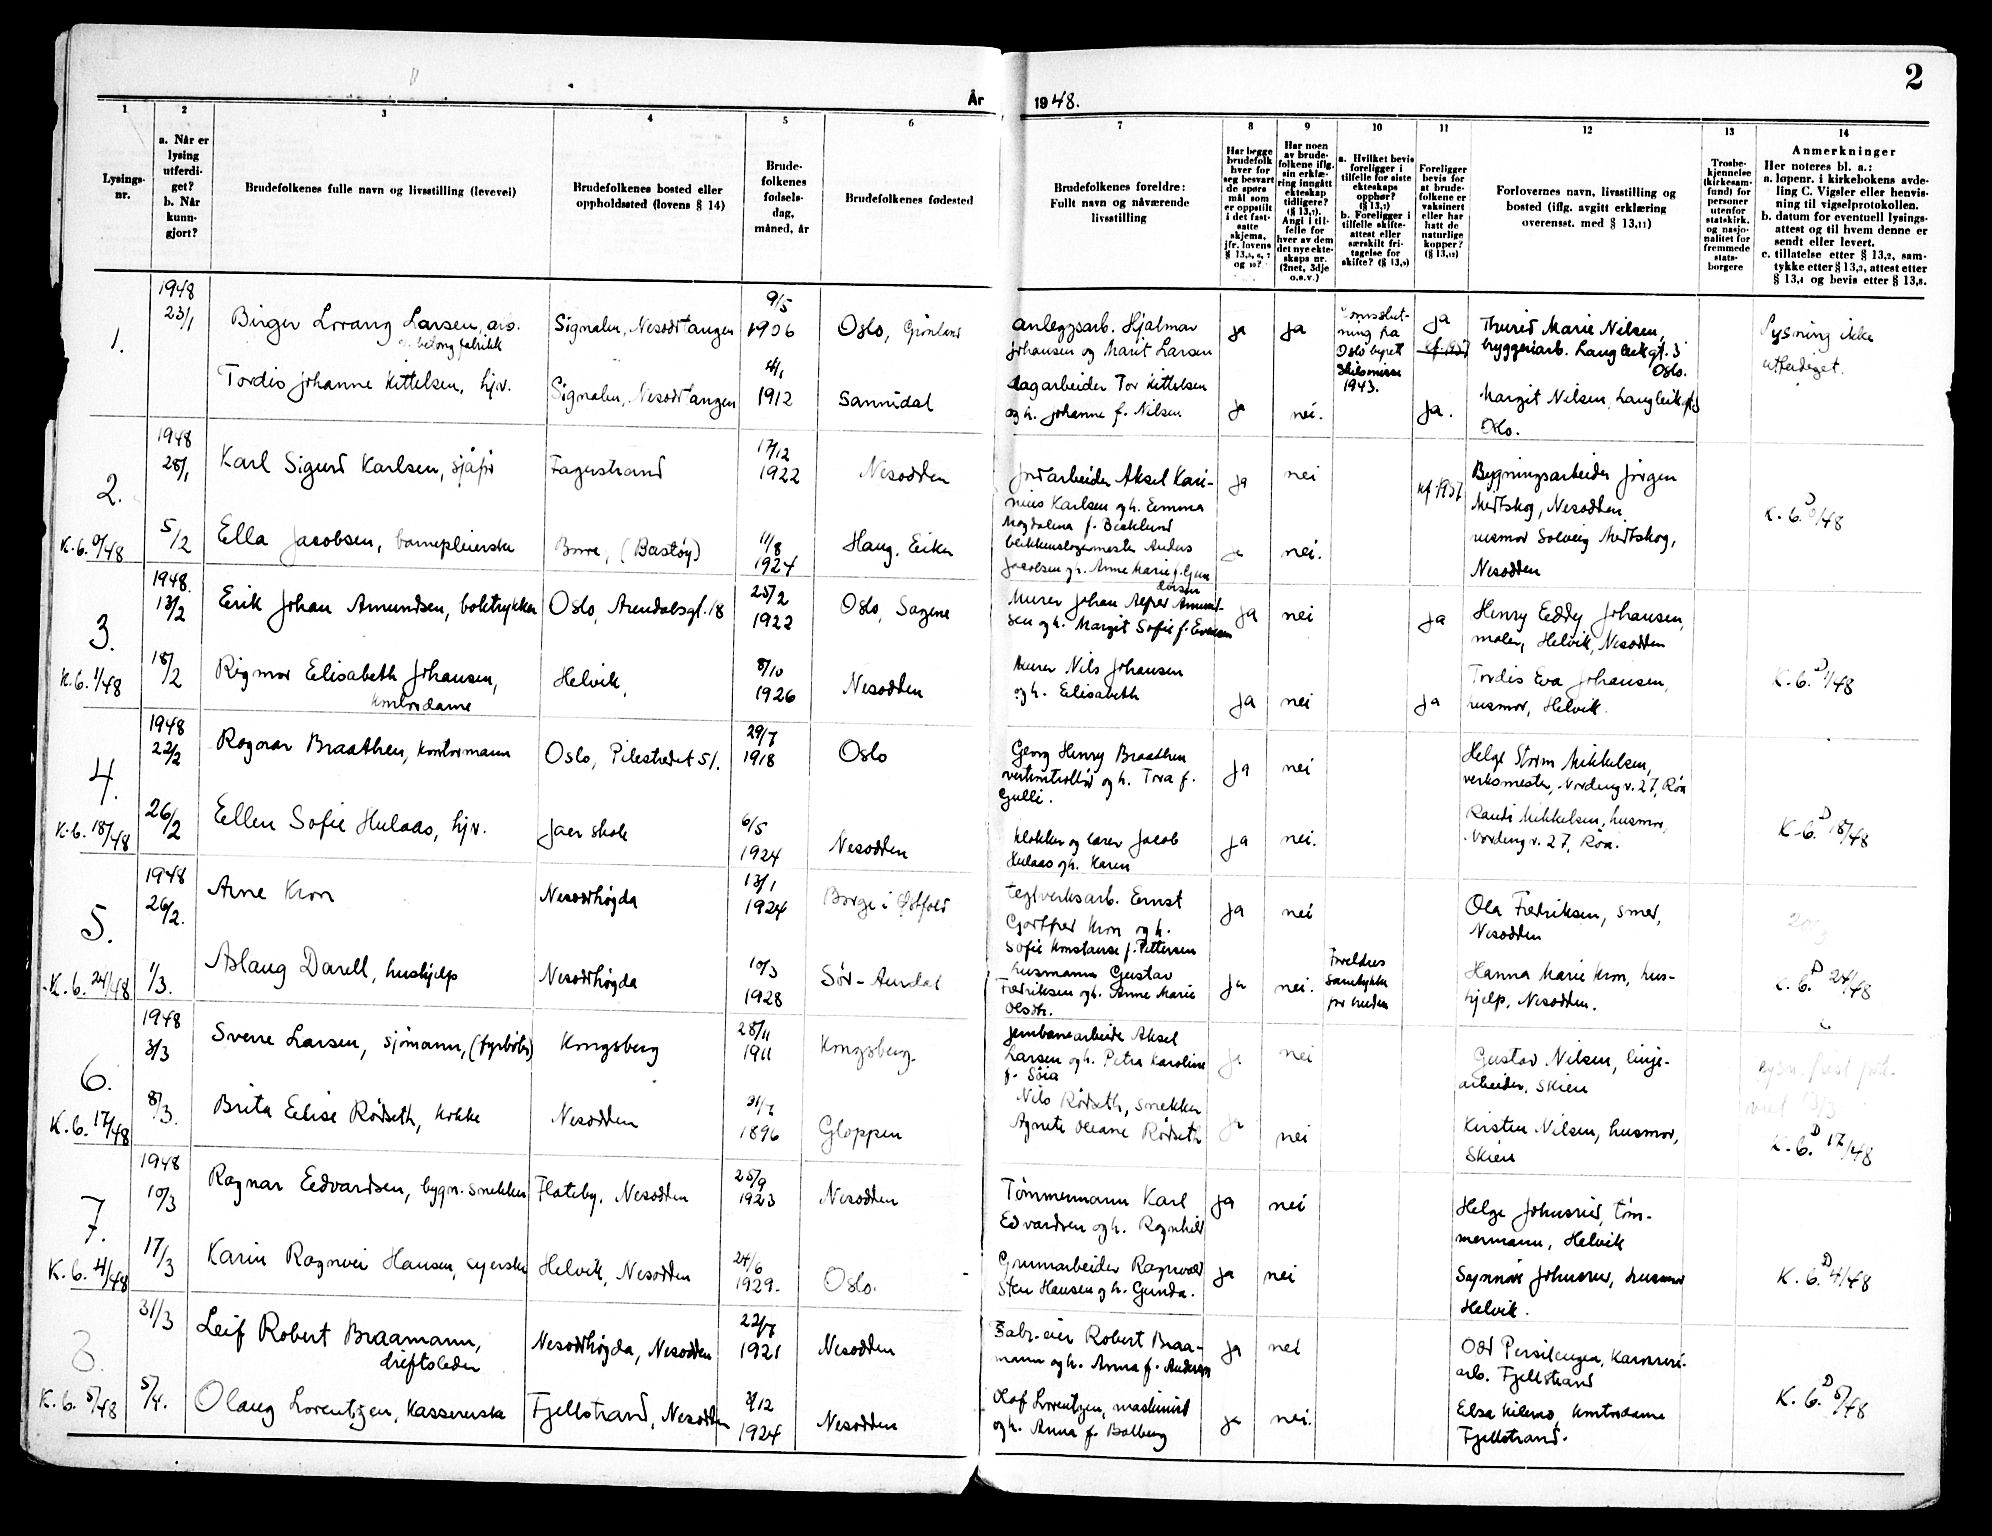 2
År 1948.
1
2
3
4
5
6
7
8
9
10
11
12
13
14
Lysings-
nr.
a. Når er
lysing
utferdi-
get?
b. Når
kunn-
gjort?
Brudefolkenes fulle navn og livsstilling (levevei)
Brudefolkenes bosted eller
oppholdssted (lovens § 14)
Brude-
folkenes
fødsels-
dag,
måned, år
Brudefolkenes fødested
Brudefolkenes foreldre:
Fullt navn og nåværende
livsstilling
Har begge
brudefolk
hver for
seg besvart
de spørs
mål som
er oppstilt
i det fast-
satte
skjema,
jfr. lovens
Har noen
av brude-
folkene iflg.
sin erklæ-
ring inngått
ekteskap
tidligere?
Angi i til-
felle for
hver av dem
det nye ekte-
skaps nr.
(2net, 3dje
o.s.v.)
a. Hvilket bevis
foreligger i
tilfelle for siste
ekteskaps
opphør?
b. Foreligger i
tilfelle skifte-
attest eller
særskilt fri-
tagelse for
skifte?
Foreligger
bevis for
at brude-
folkene er
vaksinert
eller har
hatt de
naturlige
kopper?
Forlovernes navn, livsstilling og
bosted (iflg. avgitt erklæring
overensst. med § 13,11)
Trosbe-
kjennelse
(kirkesam-
fund) for
personer
utenfor
statskirk.
og nasjo-
nalitet for
fremmede
stats-
borgere
Anmerkninger
Her noteres bl. a.:
a. løpenr. i kirkebokens avde-
ling C. Vigsler eller henvis-
ning til vigselprotokollen.
b. datum for eventuell lysings-
attest og til hvem denne er
sendt eller levert.
c. tillatelse etter § 13,2, sam-
tykke etter § 13,3, attest etter
§ 13,4 og bevis etter § 13,8.
1.
1948
23/1
Birger Lorang Larsen, arb.
betongfabrikk
Signalen, Nesoddtangen
9/5
1906
Oslo, Grønland
anleggsarb. Hjalmar
Johansen og Marit Larsen
ja
ja
Oslo byrett
1943.
ja
Thurid Marie Nilsen,
bryggeriarb. Langleikgt. 3
Oslo.
Lysning ikke
utferdiget.
Tordis Johanne Kittelsen, hjv.
Signalen, Nesoddtangen
1912
Sannidal
dagarbeider Tor Kittelsen
og h. Johanne f. Nilsen
ja
nei.
ja.
Margit Nilsen, Langleik
Oslo.
2.
K.b. 0/48
1948
28/1
5/2
Karl Sigurd Karlsen, sjåfør
Fagerstrand
17/12
1922
Nesodden
Jordarbeider Aksel Kari-
nius Karlsen og h. Emma
Magdalena f. Beeklund
ja
nei
kf 1937
Bygningsarbeider Jørgen
Midtskog, Nesodden
Ella Jacobsen, barnepleierske
Borre, (Bastøy)
11/8
1924
Haug, Eiker
blikkenslagermester Anders
Jacobsen og h. Anne Marie f. Gun
dersen
ja
nei.
husmor Solveig Midtskog,
Nesodden
K. b. D 0/48
3.
K.b. 1/48
1948.
13/2
18/2
Erik Johan Amundsen, boktrykker
Oslo, Arendalsgt. 18
25/2
1922
Oslo, Sagene
Murer Johan Alfred Amund-
sen og h. Margit Sofie f. Evensen
ja
nei
ja
Henry Eddy Johansen,
maler, Helvik, Nesodden
Rigmor Elisabeth Johansen,
kontordame
Helvik,
8/10
1926
Nesodden
Murer Nils Johansen
og h. Elisabeth
ja
nei
ja
Tordis Eva Johansen,
husmor, Helvik.
K. b. D 1/48
4.
K.b. 18/48
1948
22/2
26/2
Ragnar Braathen, kontormann
Oslo, Pilestredet 51.
29/7
1918
Oslo
Georg Henry Braathen
og h. Tora f.
Gulli.
ja
nei
Helge Storm Mikkelsen,
verksmester, Nordengv. 27, Røa
Ellen Sofie Hulaas, hjv.
Jaer skole
6/5
1924
Nesodden
Klokker og lærer Jacob
Hulaas og h. Karen
ja
nei.
Randi Mikkelsen, husmor,
Nordengv. 27, Røa.
K. b. D 18/48
5.
K.b. 24/48
1948
26/2.
1/3.
Arne Kron
Nesoddhøgda
13/1
1924
Borge i Østfold
teglverksarb. Ernst
Gottfred Kron og h.
Sofie Konstanse f. Pettersen
ja
nei
Ola Fredriksen, smed,
Nesodden
Aslaug Darell, hushjelp
Nesoddhøgda
10/3
1928
Sør-Aurdal
husmann Gustav
Fredriksen og h. Anne Marie
Olsdtr.
ja
nei.
Foreldres
samtykke
for bruden
Hanna Marie Kron, hus-
hjelp, Nesodden.
K. b. D 24/48
6.
K.b. 17/48
1948
3/3
8/3.
Sverre Larsen, sjømann, (fyrbøter)
Kongsberg
28/11
1911
Kongsberg.
Jernbanearbeider Aksel
Larsen og h. Petra Karoline
f. Stia
ja
nei
Gustav Nilsen, linje-
arbeider, Skien
Brita Elise Rødseth, kokke
Nesodden
31/7
1896
Gloppen
Nils Rødseth, snekker
Agnete Oleane Rødseth
ja
nei
Kirsten Nilsen, husmor,
Skien
K. b. D 17/48
7.
K.b. 4/48
1948
10/3
17/3
Ragnar Edvardsen, bygn. snekker
Flateby, Nesodden
25/9
1923
Nesodden
Tømmermann Karl
Edvardsen og h. Ragnhild
ja
nei
Helge Johnsrud, tøm-
mermann, Helvik
Karin Ragnvei Hansen, syerske
Helvik, Nesodden
24/6
1929.
Oslo.
Grunnarbeider Ragnvald
Sten Hansen og h. Gunda.
ja
nei
Synnøve Johnsrud, husmor
Helvik.
K. b. D 4/48
8.
K.b. 5/48
31/3
5/4.
Leif Robert Braamann,
driftsleder
Nesoddhøgda, Nesodden
22/7
1921
Nesodden
Fabr.eier Robert Braa-
mann og h. Anna f. Andersen
ja
nei
Odd Persilengen, karosseri-
arb. Fjellstrand
Olaug Lorentzen, kassererske
Fjellstrand, Nesodden
1924
Nesodden
Olaf Lorentzen, maskinist
og h. Anna f. Bolberg
ja
nei.
Elsa Kilerud, kontordame
Fjellstrand.
K. b. D 5/48